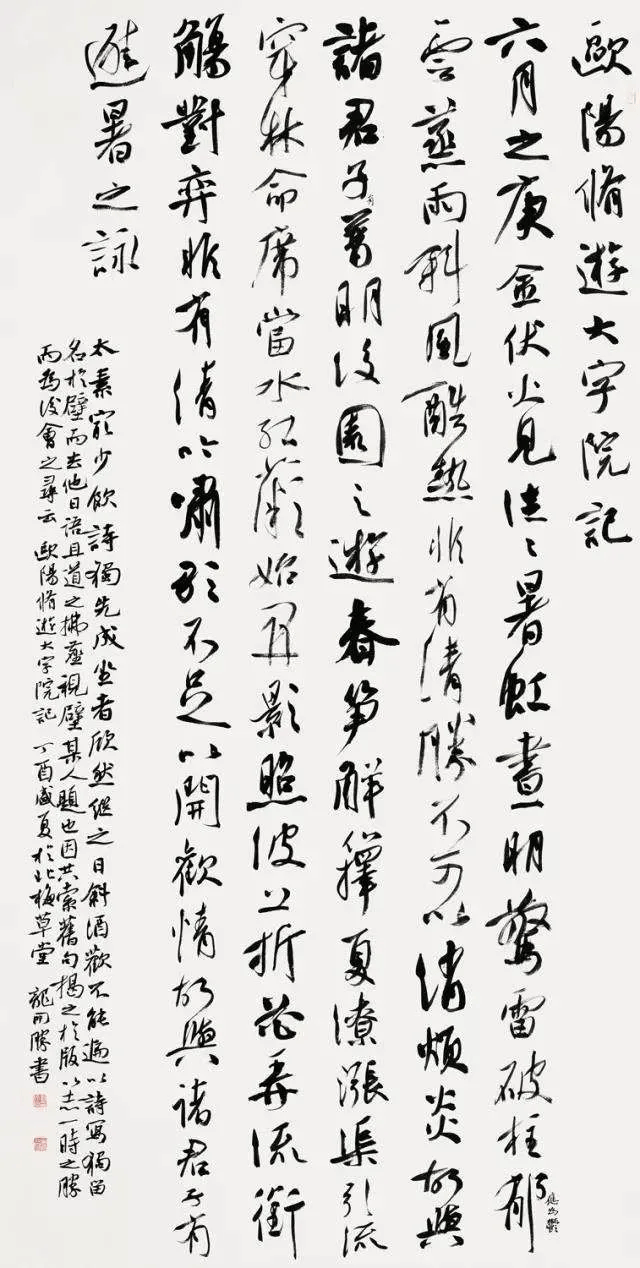 歐陽脩遊大字院記
六月之庚金伏火見往〻暑虹晝明驚雷破柱郁 應為鬱
雲蒸雨斜風酷熱非有清勝不可以消煩炎故與
諸君子有普明後園之遊春笋解籜夏潦漲渠引流
穿林命席當水紅薇始開影照波上折花弄流銜
觴對弈非有清吟嘯歌不足以開歡情故與諸君子有
避暑之詠
太素最少飲詩獨先成坐者欣然繼之日斜酒歡不能遍以詩寫獨留
名於壁而去他日語且道之拂塵視壁某人題也因共索舊句揭之於版以志一時之勝
而為後會之尋云 歐陽脩遊大字院記 丁酉盛夏於北梅草堂 龍開勝書